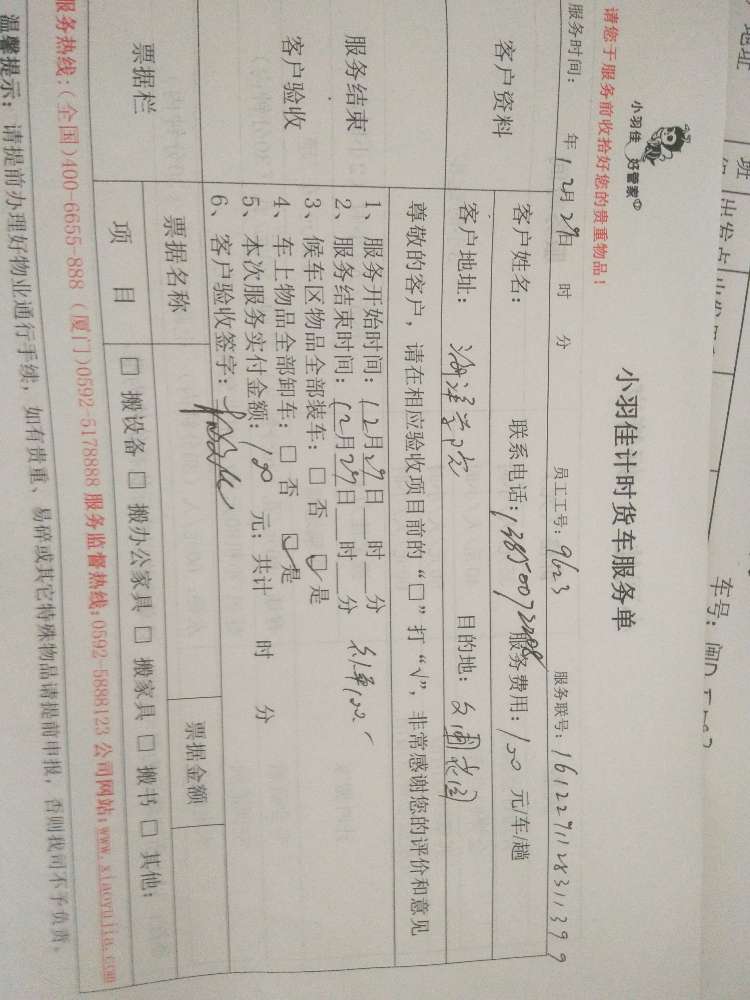 地址
班
出发点
车号：闽D
小羽佳 好管家
小羽佳计时货车服务单
请您于服务前收拾好您的贵重物品！
服务时间： 年12月29日 时 分 员工工号：9623 服务联号：1612291128311399
客户资料
客户姓名： 联系电话：服务费用：150 元/车/趟
客户地址：海洋学院 目的地：文圃花园
尊敬的客户，请在相应验收项目前的“□”打“√”，非常感谢您的评价和意见
服务结束
客户验收
1、服务开始时间：12月29日 时 分
2、服务结束时间：12月29日 时 分
3、候车区物品全部装车：□ 否 ☑ 是
4、车上物品全部卸车：□ 否 ☑ 是
5、本次服务实付金额：元；共计 时 分
6、客户验收签字：
票据栏
票据名称 票据金额
项 目 □ 搬设备 □ 搬办公家具 □ 搬家具 □ 搬书 □ 其他：
服务热线：（全国）400-6655-888 （厦门）0592-5178888 服务监督热线：0592-5888123 公司网站：www.xiaoyujia.com
温馨提示：请提前办理好物业通行手续，如有贵重、易碎或其它特殊物品请提前申报，否则我司不予负责。